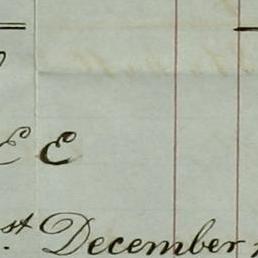 E E
st December